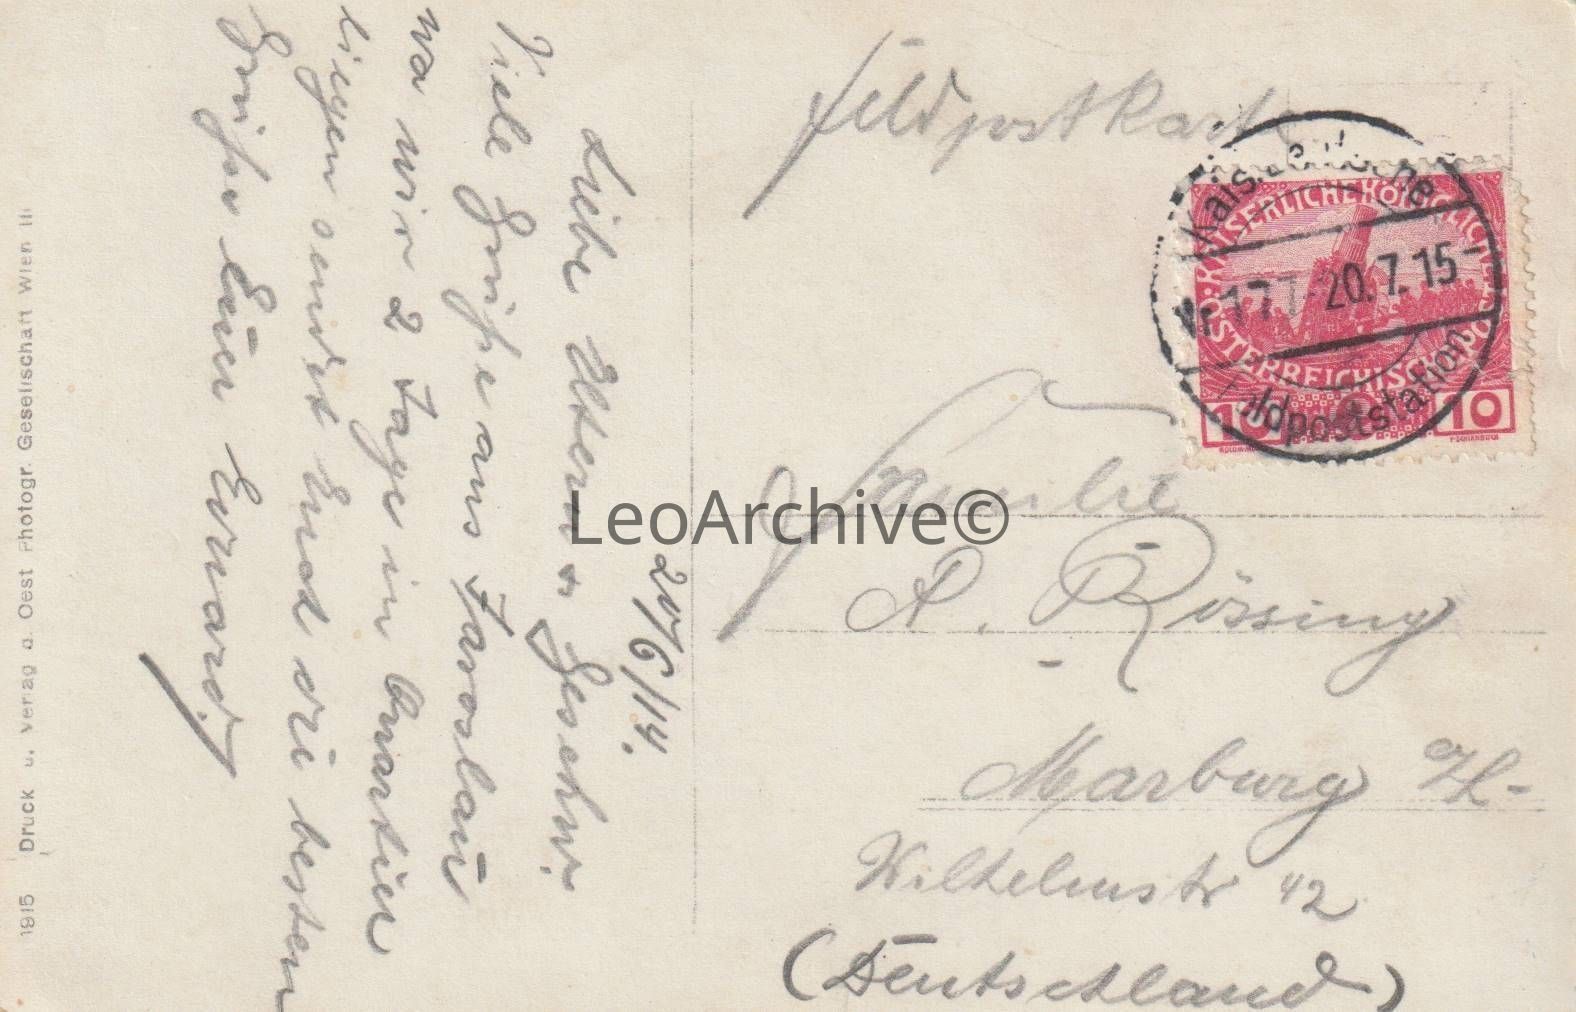 Feldpostkarte
Kais. Deutsche
Nr 177 - 20.7.15 -
Feldpoststation
KAISERLICHEKÖNIGLICHE
ÖSTERREICHISCHE POST
10 10
20/6/14.
Liebe Eltern u Geschw.
Viele Grüße aus Jaroslau
wo wir 2 Tage in Quartier
liegen sendet Euch die besten
Grüße Euer Eduard.
Familie
A. Rössing
Marburg a/L-
Wilhelmstr 42
(Deutschland)
1915 Druck u. Verlag d. Oest Photogr. Gesellschaft Wien III
LeoArchive©